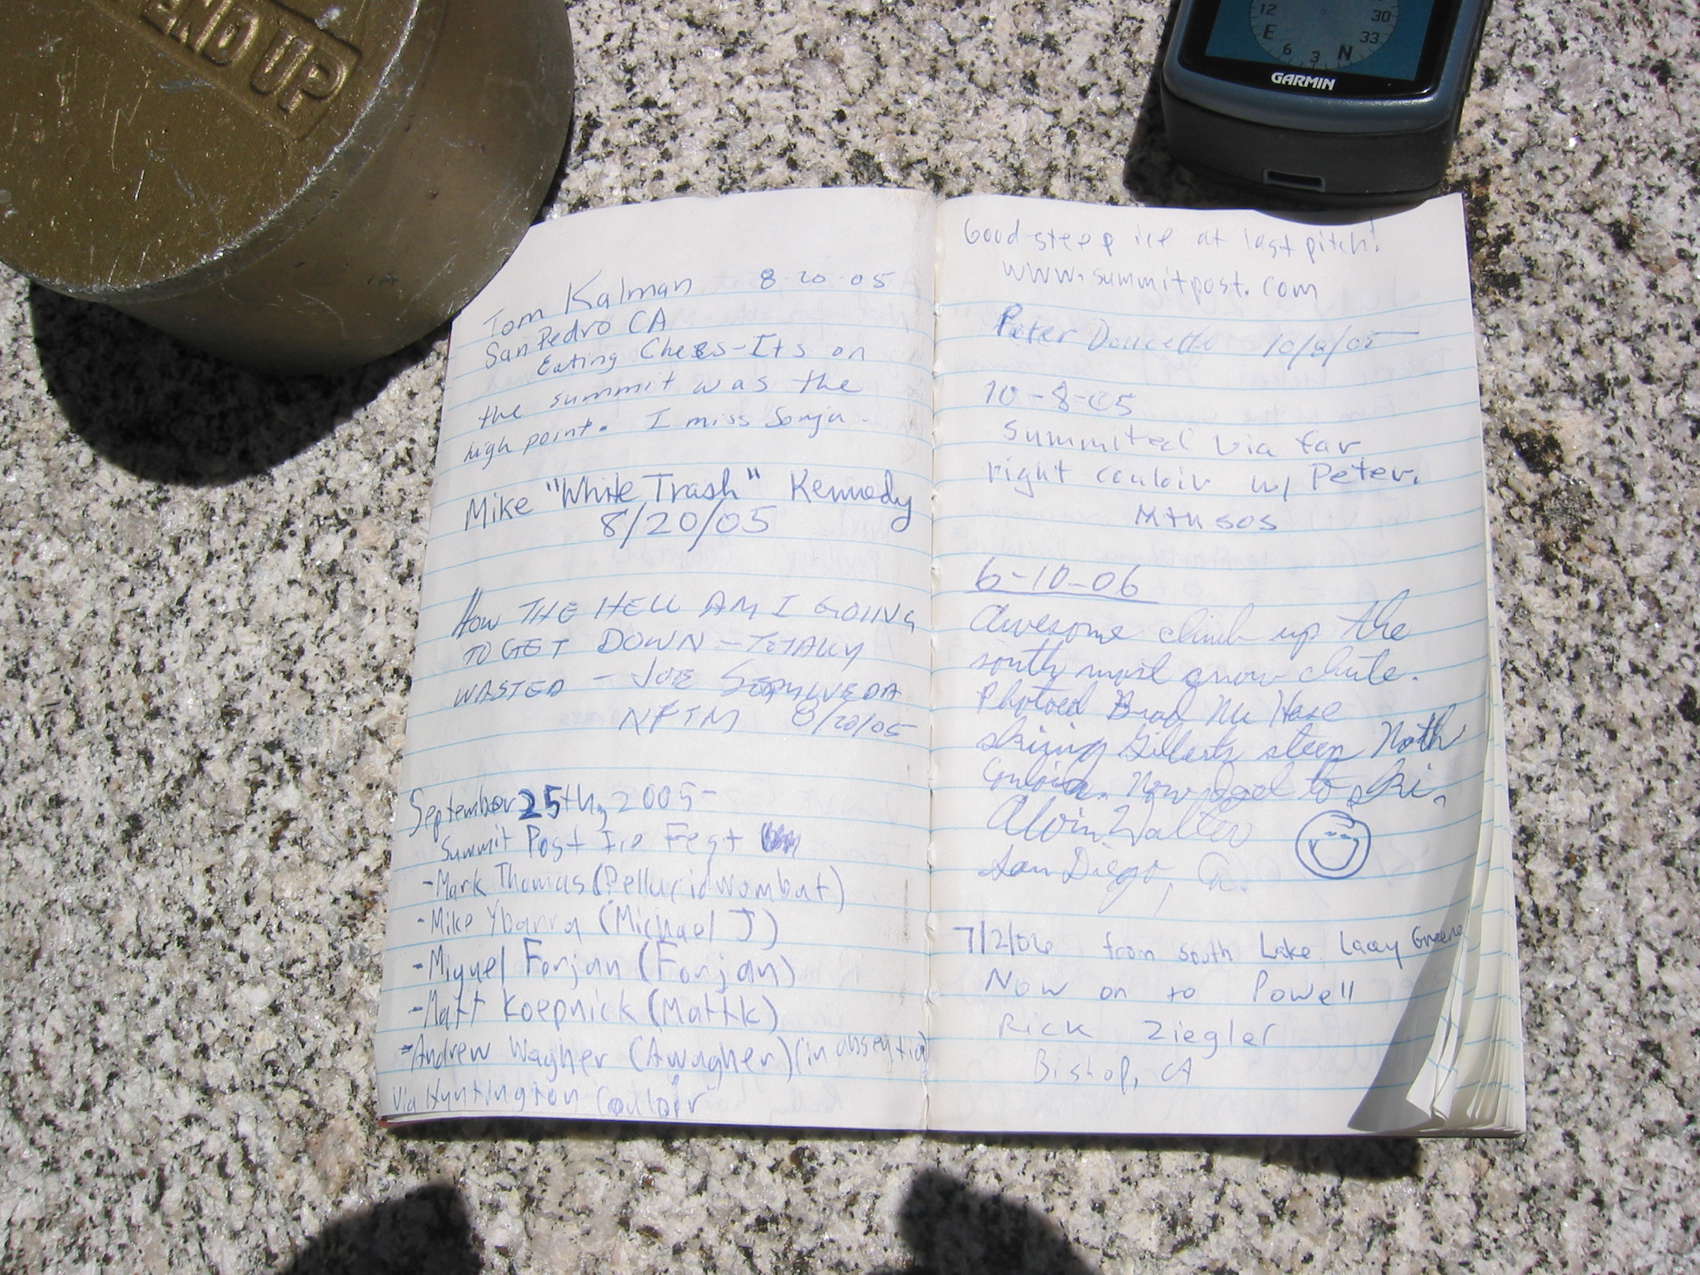 END UP
12
30
E
33
6
3
N
GARMIN
Tom Kalman 8-20-05
San Pedro CA
Eating Chees-Its on
the summit was the
high point. I miss Sonja.
Mike "White Trash" Kennedy
8/20/05
HOW THE HELL AM I GOING
TO GET DOWN - TOTALLY
WASTED - JOE SEPULVEDA
NFTM 8/20/05
September 25th, 2005
Summit Post Ice Fest
- Mark Thomas (Pellucidwombat)
- Mike Ybarra (Michael J)
- Miguel Forjan (Forjan)
- Matt Koepnick (Mattk)
- Andrew Wagner (Awagher) (in absentia)
Via Huntington Couloir
Good steep ice at last pitch!
www.summitpost.com
Peter Doucette
10-8-05
Summited via far
right couloir w/ Peter.
6-10-06
Awesome climb up the
south most snow chute.
Photoed Brad
skiing Gilberts steep North
Couloir. Now to ski.
Alvin Walter
San Diego, Ca.
7/2/06 from South Lake Lacey Greene
Now on to Powell
Rick Ziegler
Bishop, CA